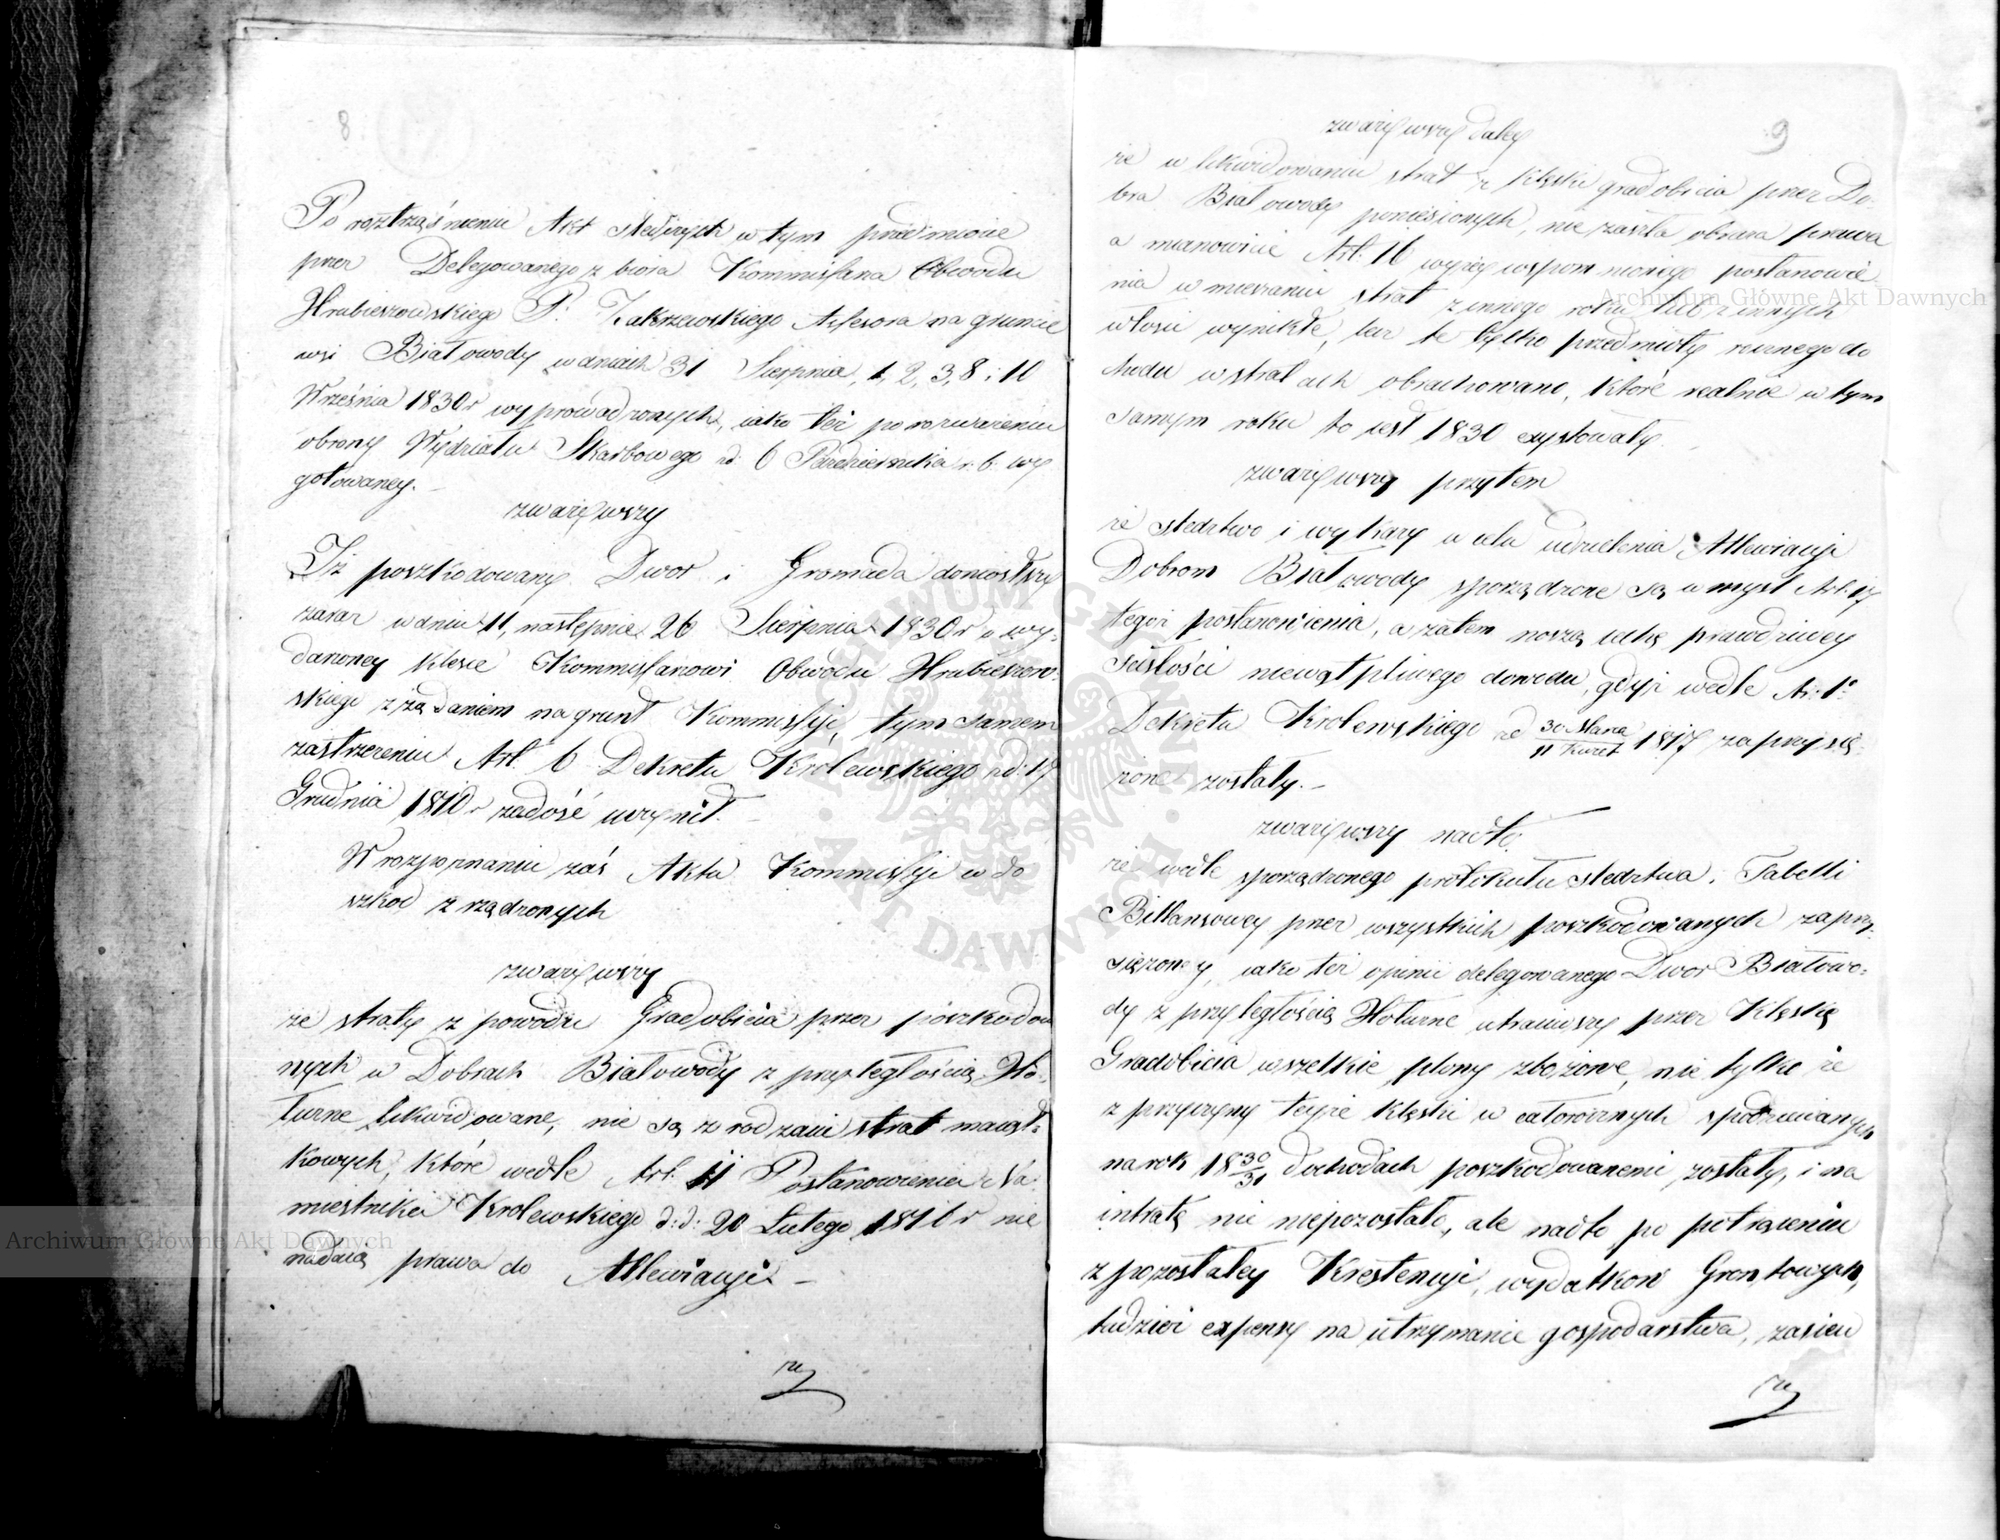 8
Po roztrząśnieniu Akt śledczych w tym przedmiocie
przez Delegowanego z biora Kommissarza Obwodu
Hrubieszowskiego P: Zakrzewskiego Assesora na gruncie
wsi Białowody w dniach 31 Sierpnia, 1, 2, 3, 8 i 10
Września 1830 r wyprowadzonych, jako też po rozważeniu
obrony Wydziału Skarbowego nd: 6 Pazdziernika r: b: wy
gotowaney.
zważywszy
Iż poszkodowany Dwor i Gromada doniosłszy
zaraz w dniu 11, następnie 26 Sierpnia 1830 r o wy-
darzoney klesce Kommissarzowi Obwodu Hrubieszow-
skiego z żądaniem na grunt Kommissyi, tym samem
zastrzeżeniu Art. 6 Dekretu Królewskiego nd: 17
Grudnia 1810 r zadość uczynił.
W rozpoznaniu zaś Akta Kommissyi w do
szkod zrządzonych
zważywszy
że straty z powodu Gradobicia przez poszkodowa
nych w Dobrach Białowody z przyległością Ho-
turne likwidowane, nie są z rodzaiu strat maiąt-
kowych, które wedle Art. 11 Postanowienia Na
miestnika Krolewskiego d: d: 20 Lutego 1816 r nie
nadaią prawa do Allewiacyi. –
że
9
zważywszy daley
że w likwidowaniu strat z klęski gradobicia przez Do-
bra Białowody poniesionych, nie zaszła obraza prawa
a mianowicie Art. 16 wyżey wspomnionego postanowie
nia w mieszaniu strat z innego roku lub z innych
włosci wynikłe, lecz te tylko przedmioty rocznego do
chodu w stratach obrachowano, które realnie w tym
samym roku to iest 1830 exystowały.
zważywszy przytem
że sledztwo i wykazy w celu udzielenia Allewiacyi
Dobrom Białowody sporządzone są w mysl Art. 17
tegoż postanowienia, a zatem noszą cechę prawdziwey
scisłości niewątpliwego dowodu, gdyż wedle Ar: 1°
Dekretu Krolewskiego zd 30 Marca / 11 Kwiet 1817 zaprzysię-
żone zostały. –
zważywszy nadto
że wedle sporządzonego protokułu sledztwa, Tabelli
Billansowey przez wszystkich poszkodowanych zaprzy-
siężoney, jako też opinii delegowanego Dwor Białowo-
dy z przyległością Hoturne utraciwszy przez klęskę
Gradobicia wszelkie plony zbożowe, nie tylko że
z przyczyny teyże klęski w całorocznych spodziewanych
na rok 1830/31 dochodach poszkodowanemi zostały, i na
intratę nic niepozostało, ale nadto po potrąceniu
z pozostałey Krestencyi, wydatkow Gruntowych,
tudzież expensy na utrzymanie gospodarstwa, zasiew
że
Archiwum Główne Akt Dawnych
Archiwum Główne Akt Dawnych
ARCHIWUM GŁÓWNE · AKT DAWNYCH ·